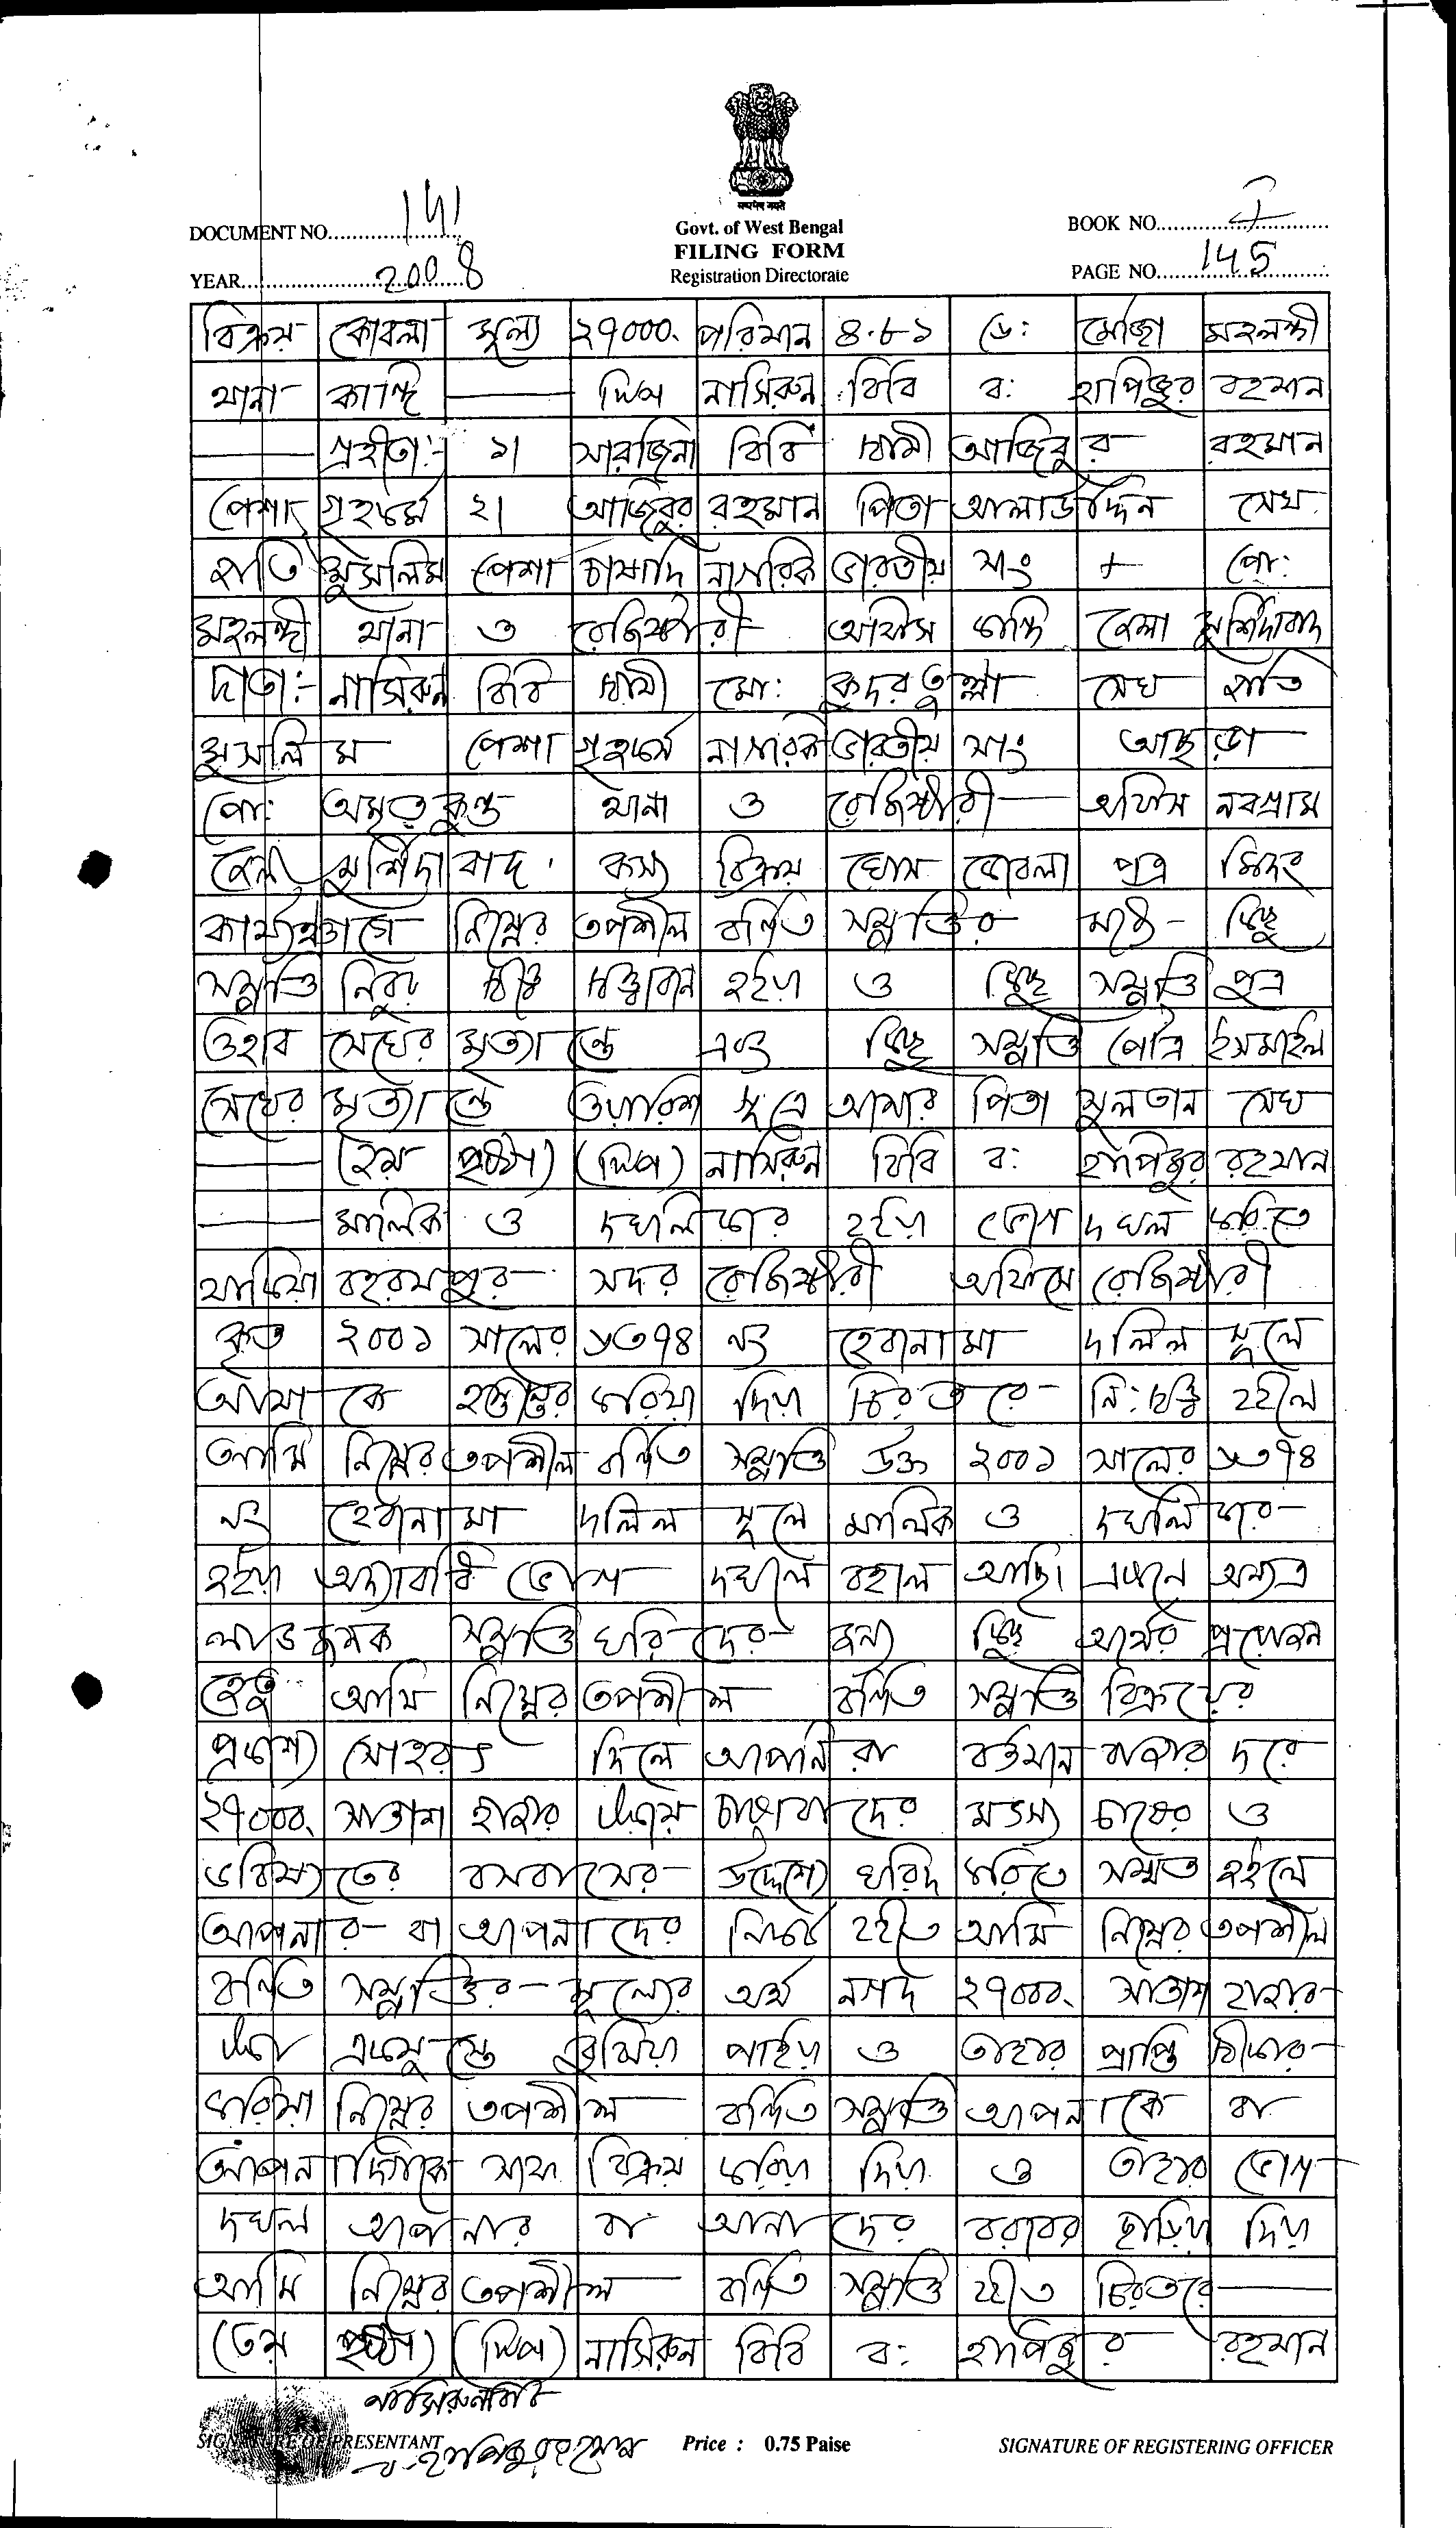 सत्यमेव जयते
DOCUMENT NO. 141
Govt. of West Bengal
BOOK NO. I
FILING FORM
YEAR 2008
Registration Directorate
PAGE NO. 145
বিক্রয় কোবলা মূল্য ২৭০০০. পরিমান ৪.৮১ ডে: মৌজা মহলন্দী
থানা কান্দি — টিপ নাসিরুন বিবি ব: হাপিজুর রহমান
— গ্রহীতা:- ১। সারজিনা বিবি স্বামী আজিবুর রহমান
পেশা গৃহকর্ম ২। আজিবুর রহমান পিতা আলাউদ্দিন সেখ
জাতি মুসলিম পেশা চাষাদি নাগরিক ভারতীয় সাং + পো:
মহলন্দী থানা ও রেজিষ্টারী অফিস কান্দি জেলা মুর্শিদাবাদ
দাতা:- নাসিরুন বিবি স্বামী মো: কুদরতুল্লা সেখ জাতি
মুসলিম পেশা গৃহকর্ম নাগরিক ভারতীয় সাং আছরা
পো: অমৃতকুন্ড থানা ও রেজিষ্টারী — অফিস নবগ্রাম
জেলা মুর্শিদাবাদ. কস্য বিক্রয় খোস কোবলা পত্র মিদং
কার্য্যঞ্চাগে নিম্নের তপশীল বর্নিত সম্পত্তির মধ্যে - কিছু
সম্পত্তি স্বত্ববান হইয়া ও কিছু সম্পত্তি পুত্র
ওহাব সেখের মৃত্যান্তে এবং কিছু সম্পত্তি পৌত্র ইসমাইল
সেখের মৃত্যান্তে ওয়ারিশ সূত্রে আমার পিতা সুলতান সেখ
— (২য় পৃষ্ঠা) (টিপ) নাসিরুন বিবি ব: হাপিজুর রহমান
— মালিক ও দখলিকার হইয়া ভোগ দখল করিতে
থাকিয়া বহরমপুর সদর রেজিষ্টারী অফিসে রেজিষ্টারী
কৃত ২০০১ সালের ৬৩৭৪ নং হেবানামা দলিল মূলে
আমাকে হস্তান্তর করিয়া দিয়া চিরতরে নি:স্বত্ত্ব হইলে
আমি নিম্নের তপশীল বর্নিত সম্পত্তি উক্ত ২০০১ সালের ৬৩৭৪
নং হেবানামা দলিল মূলে মালিক ও দখলিকার
হইয়া অদ্যাবধি ভোগ দখলে বহাল আছি। এক্ষনে অন্যত্র
লাভজনক সম্পত্তি খরিদের জন্য কিছু অর্থের প্রয়োজন
হেতু আমি নিম্নের তপশীল বর্নিত সম্পত্তি বিক্রয়ের
প্রকাশ্য সোহরৎ দিলে আপনিরা বর্ত্তমান বাজার দরে
২৭০০০. সাতাশ হাজার টাকায় চাষাবাদের মতস্য চাষের ও
ভবিষ্যতের বসবাসের উদ্দেশ্যে খরিদ করিতে সম্মত হইলে
আপনার বা আপনাদের নিকট হইতে আমি নিম্নের তপশীল
বর্নিত সম্পত্তির মূল্যের অর্থ নগদ ২৭০০০. সাতাশ হাজার
টাকা একমুস্তে বুঝিয়া পাইয়া ও তাহার প্রাপ্তি স্বীকার
করিয়া নিম্নের তপশীল বর্নিত সম্পত্তি আপনাকে বা
আপনাদিগকে সাফ বিক্রয় করিয়া দিয়া ও তাহার ভোগ
দখল আপনার বা আনাদের বরাবর ছাড়িয়া দিয়া
আমি নিম্নের তপশীল বর্নিত সম্পত্তি হইতে চিরতরে —
(৩য় পৃষ্ঠা) (টিপ) নাসিরুন বিবি ব: হাপিজুর রহমান
নাসিরুন বিবি
SIGNATURE OF PRESENTANT
ব: হাপিজুর রহমান
Price : 0.75 Paise
SIGNATURE OF REGISTERING OFFICER